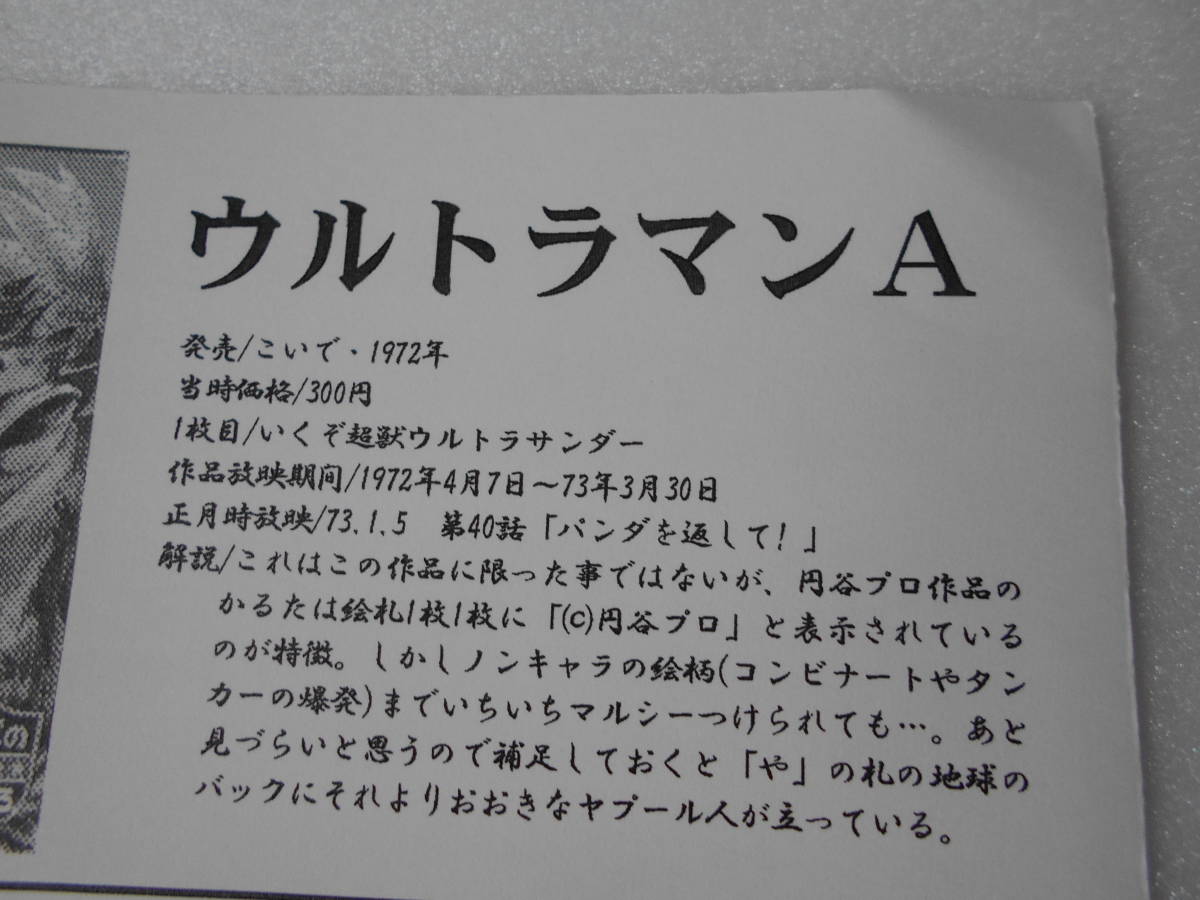 ウルトラマンA
発売/こいで・1972年
当時価格/300円
1枚目/いくぞ超獣ウルトラサンダー
作品放映期間/1972年4月7日〜73年3月30日
正月時放映/73.1.5 第40話「パンダを返して!」
解説/これはこの作品に限った事ではないが、円谷プロ作品の
かるたは絵札1枚1枚に「(c)円谷プロ」と表示されている
のが特徴。しかしノンキャラの絵柄(コンビナートやタン
カーの爆発)までいちいちマルシーつけられても…。あと
見づらいと思うので補足しておくと「や」の札の地球の
バックにそれよりおおきなヤプール人が立っている。
の